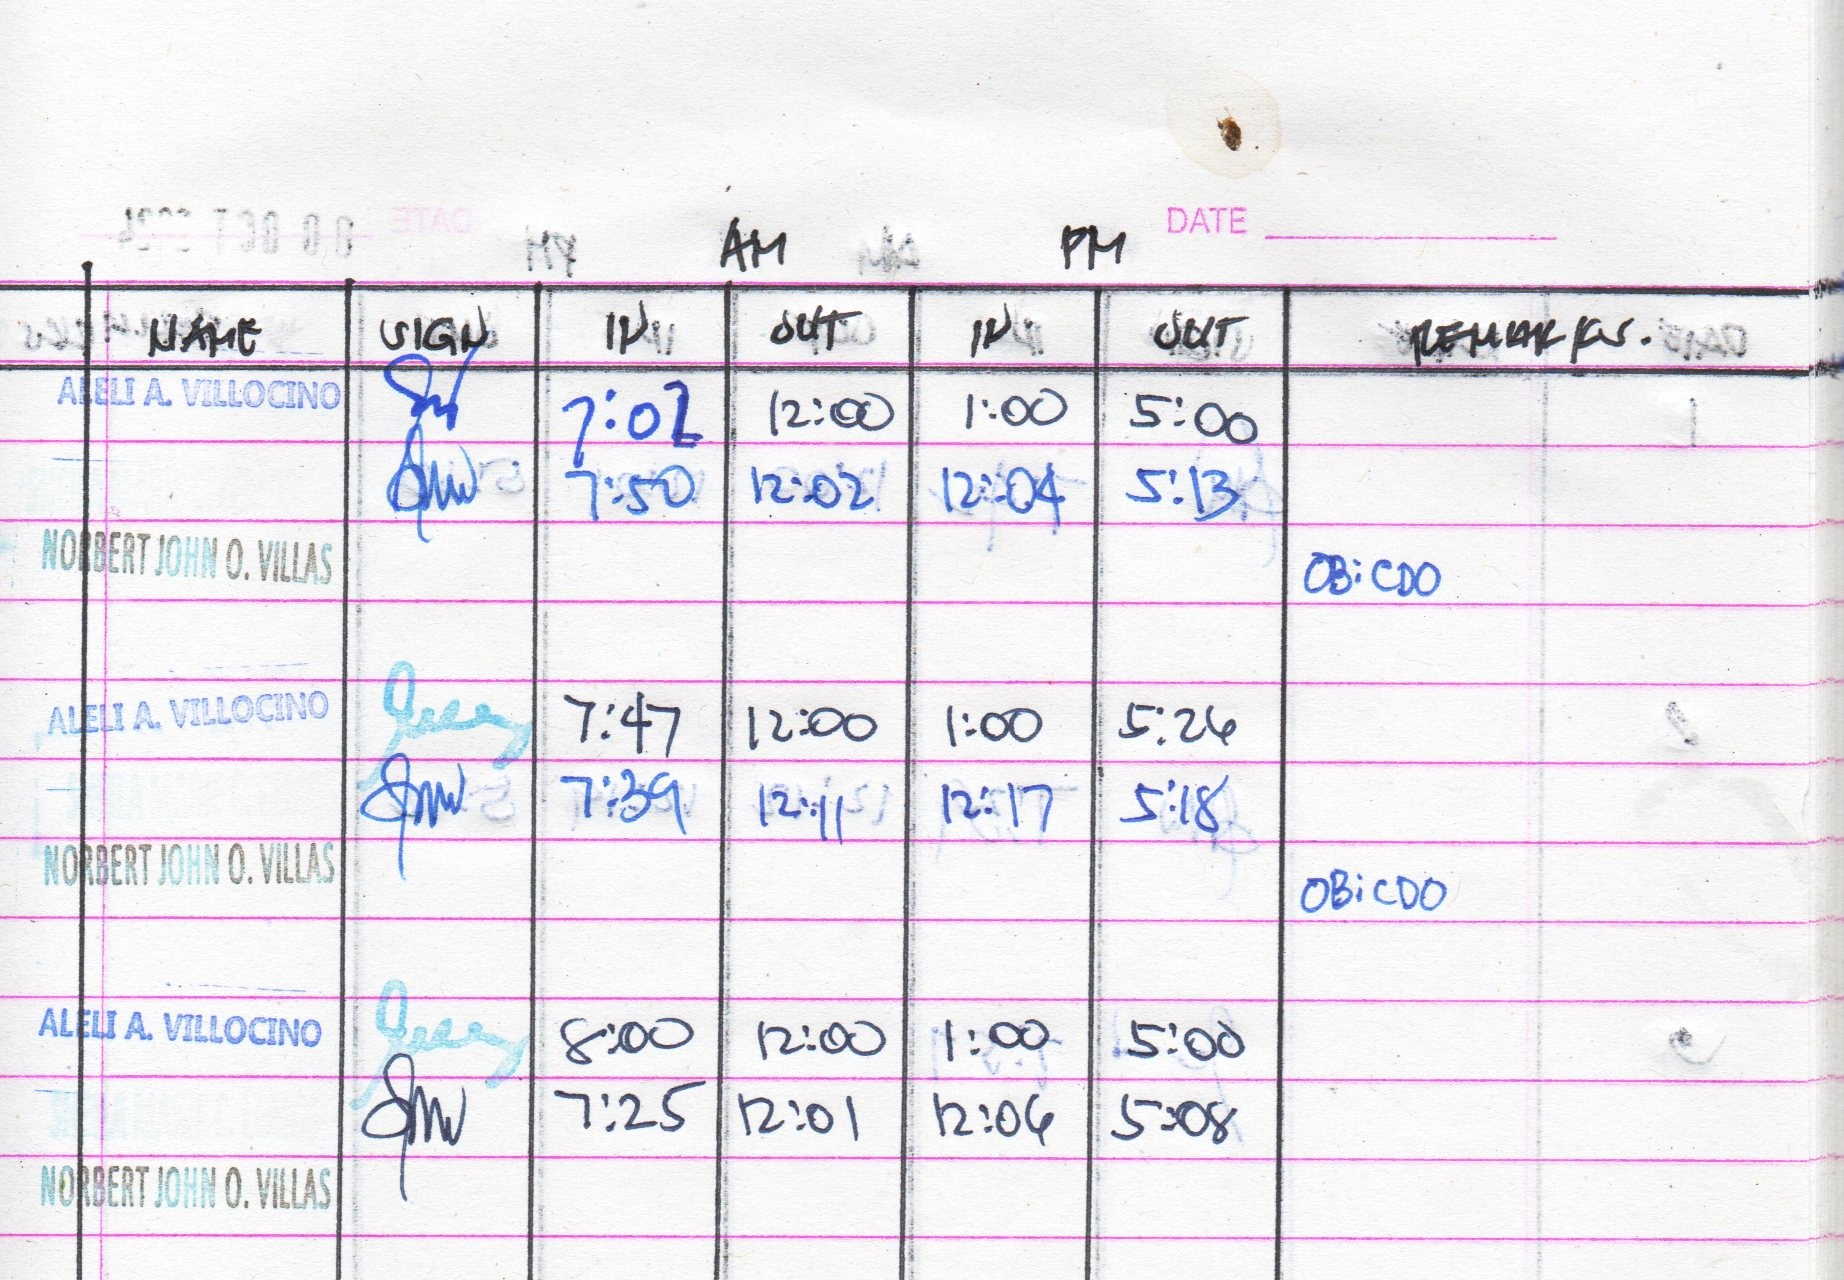 DATE
AM PM
NAME SIGN IN OUT IN OUT REMARKS.
ALELI A. VILLOCINO 7:02 12:00 1:00 5:00
7:50 12:02 12:04 5:13
NORBERT JOHN O. VILLAS OB: CDO
ALELI A. VILLOCINO 7:47 12:00 1:00 5:26
7:39 12:11 12:17 5:18
NORBERT JOHN O. VILLAS OB: CDO
ALELI A. VILLOCINO 8:00 12:00 1:00 5:00
7:25 12:01 12:06 5:08
NORBERT JOHN O. VILLAS